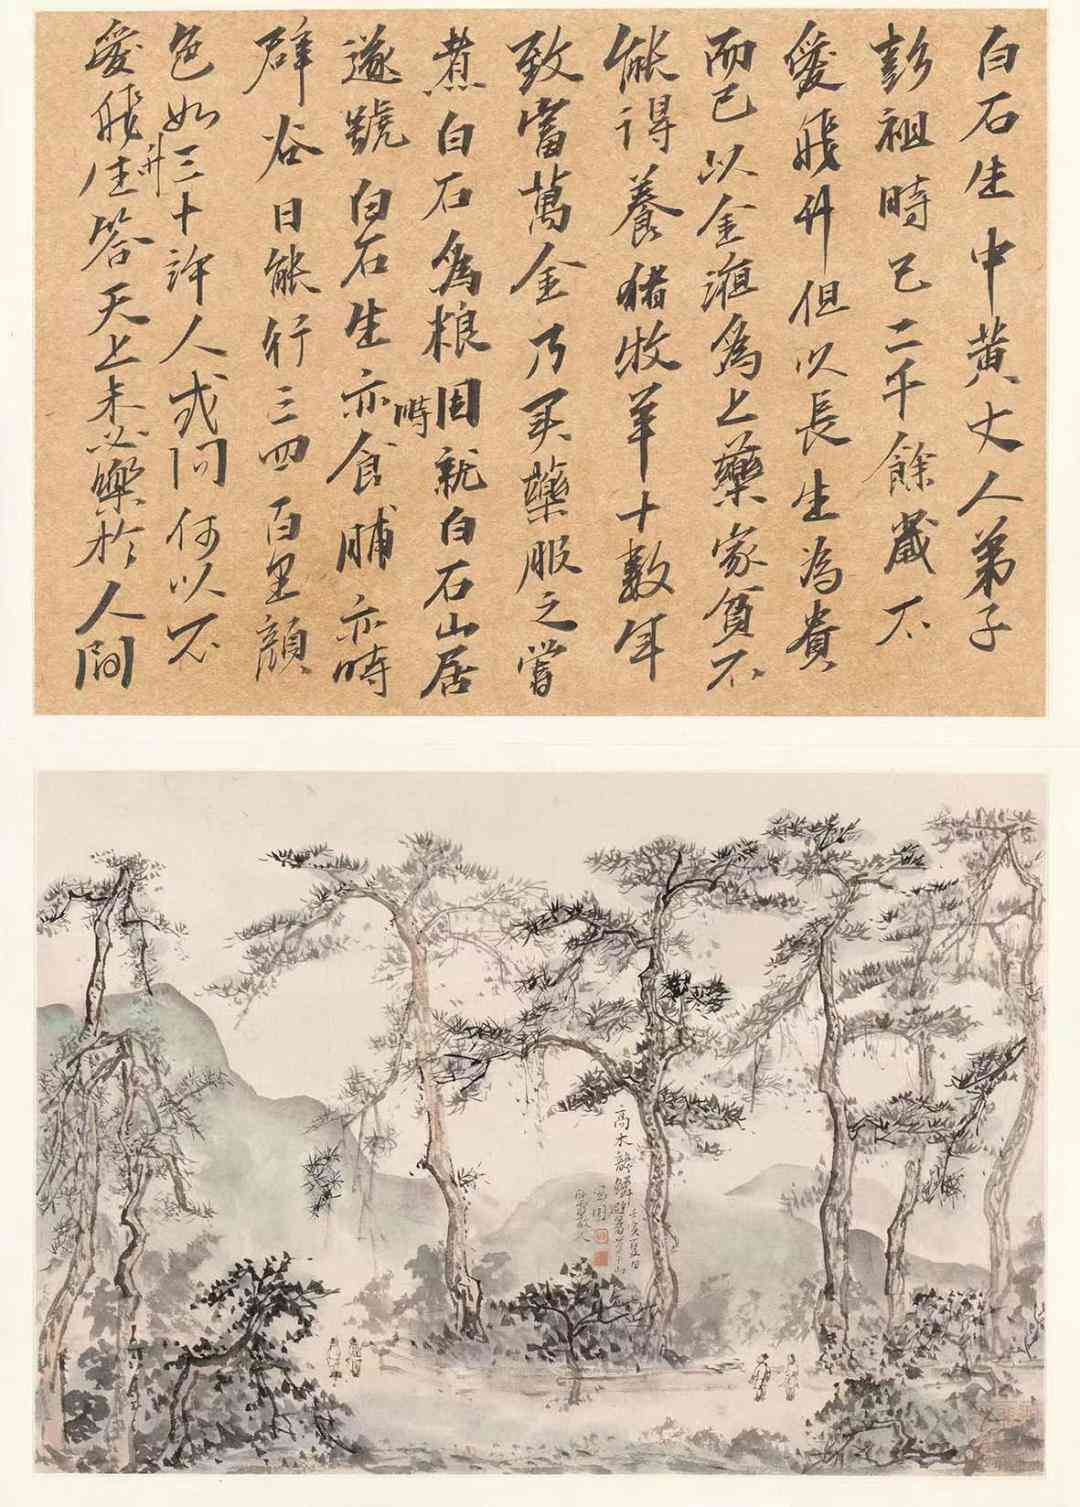 白石生中黄丈人弟子
彭祖時已二千餘歲不
愛飛升但以長生為貴
而已以金液為上藥家貧不
能得養豬牧羊十數年
致富萬金乃買藥服之嘗
煮白石為粮因就白石山居
時
遂號白石生亦食脯亦時
辟谷日能行三四百里顏
色如三十許人或問何以不
升
愛飛生答天上未必樂於人間
高木龍鱗